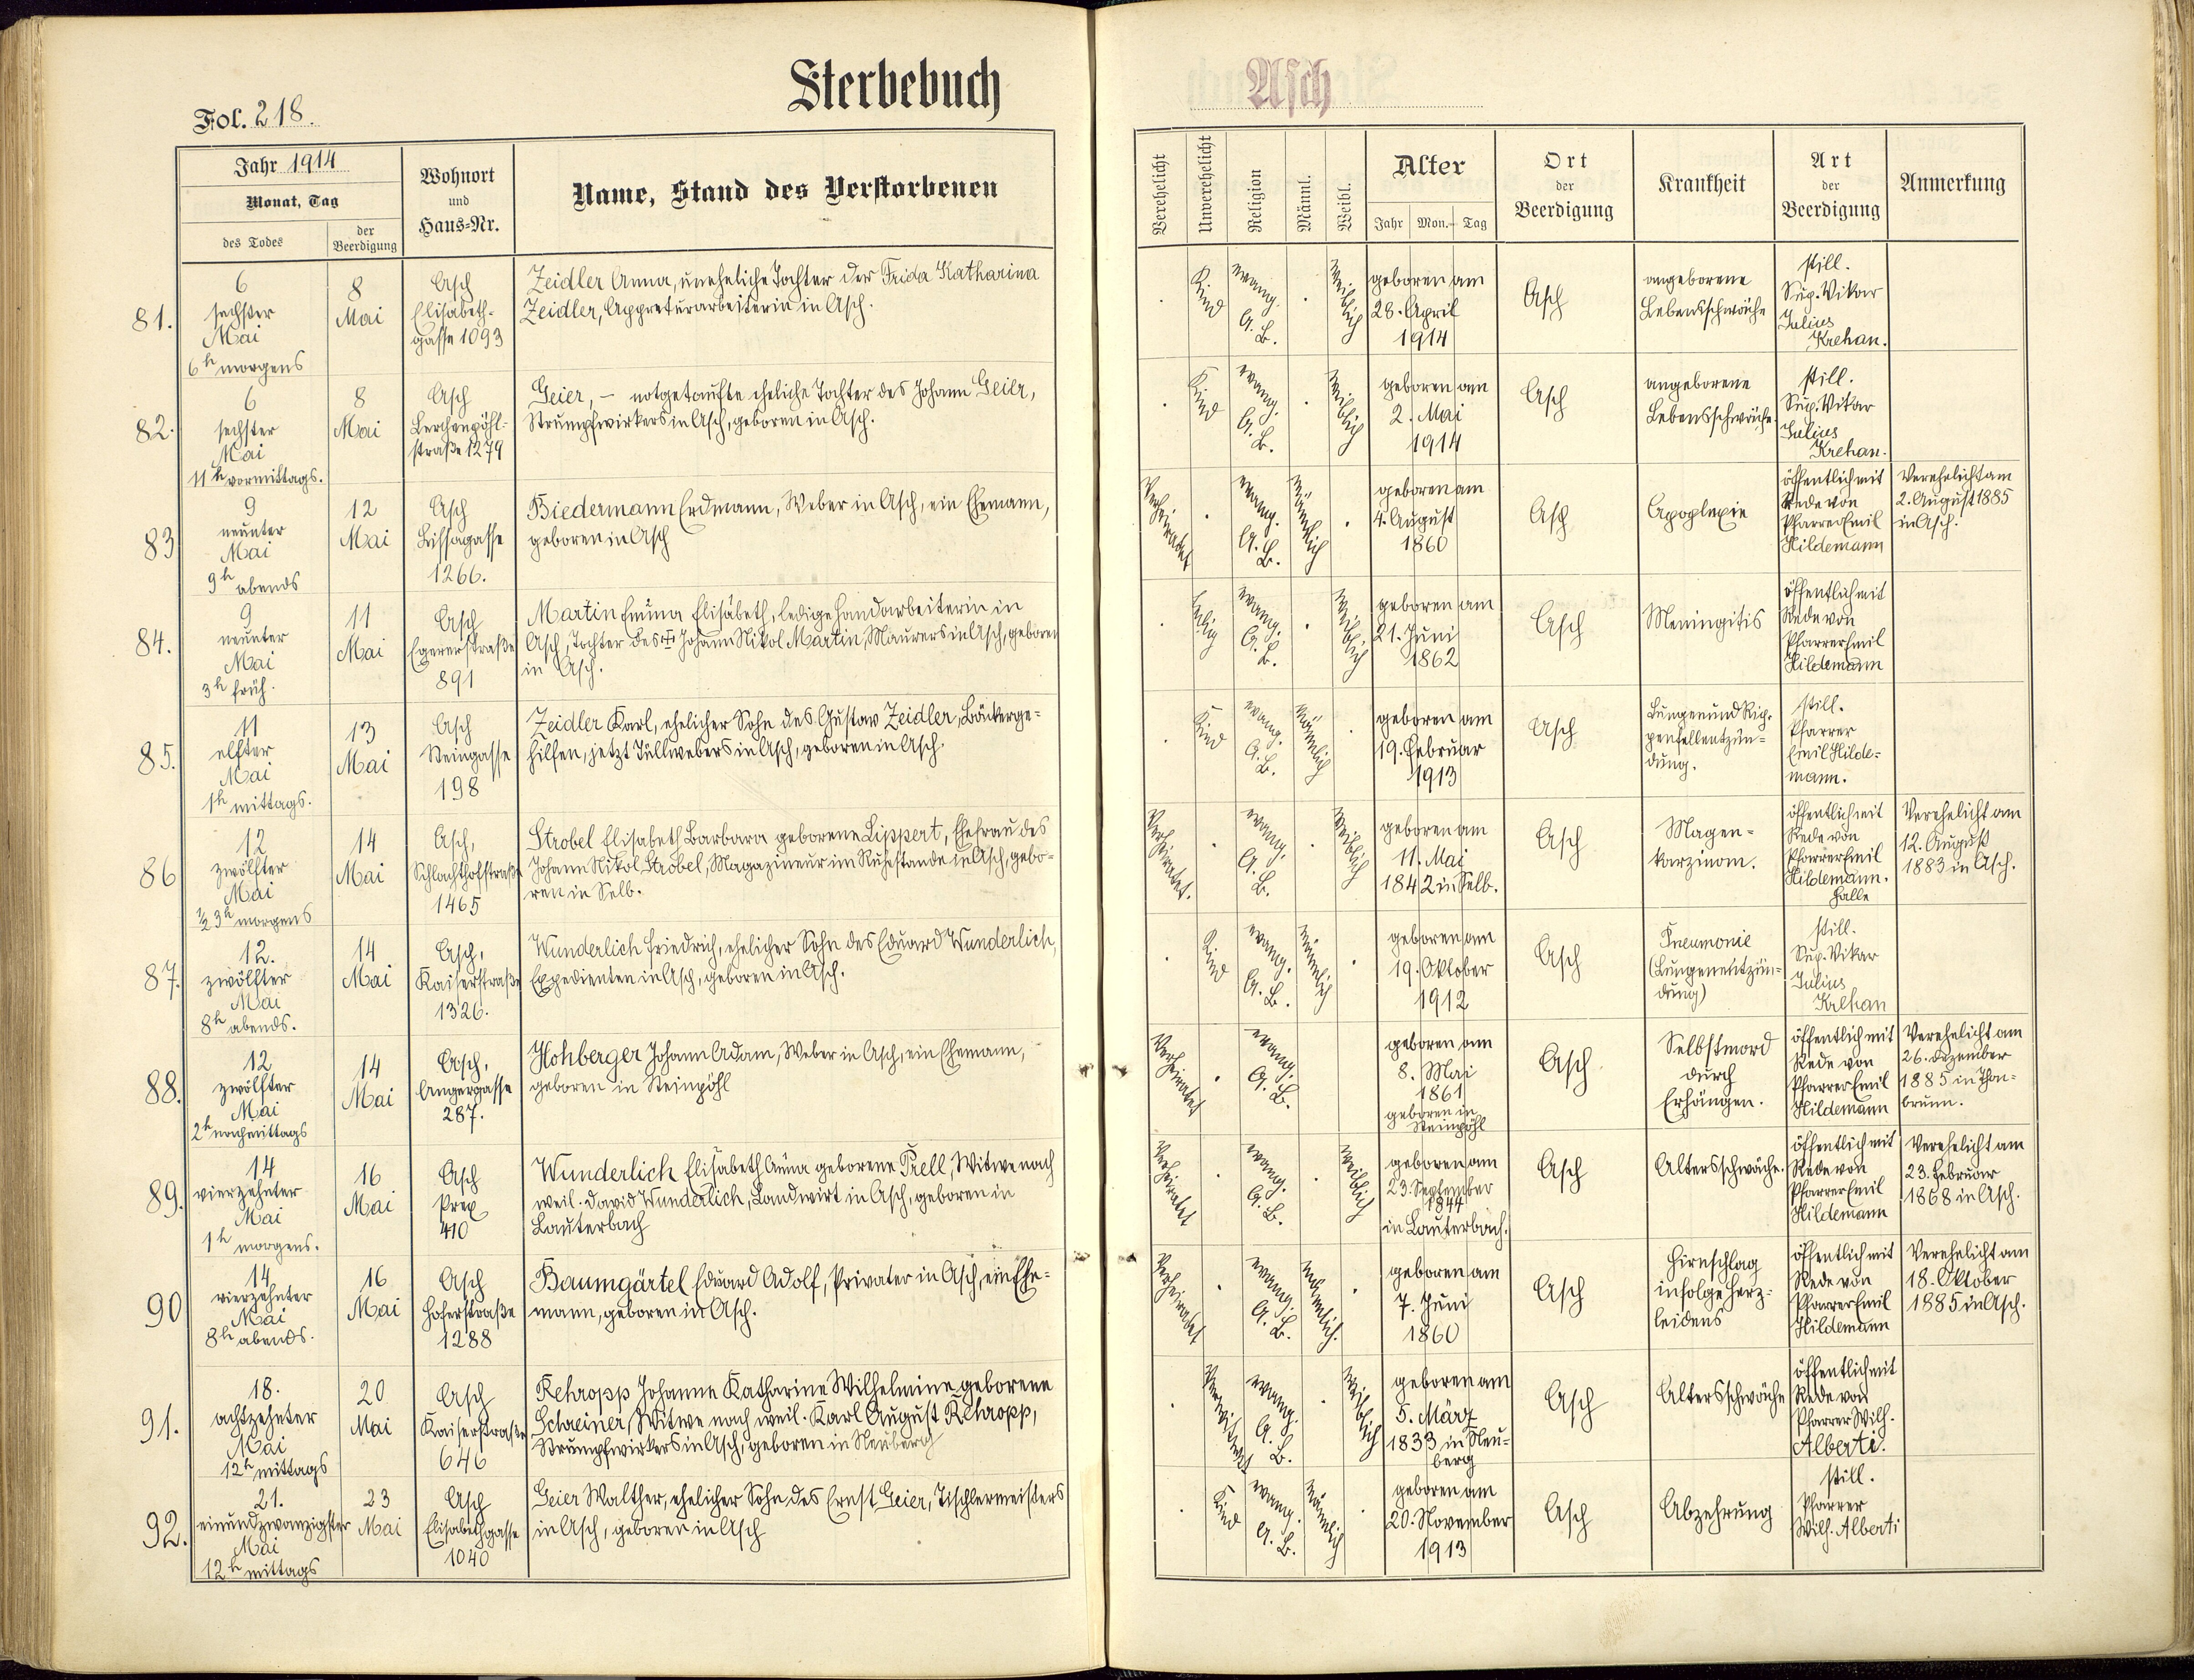 Sterbebuch
Asch
Fol. 218.
Jahr 1914
Monat, Tag
des Todes
der Beerdigung
Wohnort
und
Haus=Nr.
Name, Stand des Verstorbenen
Verehelicht
Unverehelicht
Religion
Männl.
Weibl.
Alter
Jahr
Mon.
Tag
Ort
der
Beerdigung
Krankheit
Art
der
Beerdigung
Anmerkung
81.
6
sechster
Mai
6h morgens
8
Mai
Asch
Elisabeth-
gasse 1093
Zeidler Anna, uneheliche Tochter der Frida Katharina
Zeidler, Appreturarbeiterin in Asch.
Kind
evang.
A. B.
weiblich
geboren am
28. April
1914
Asch
angeborene
Lebensschwäche
still.
Sup. Vikar
Julius
Krehan.
82.
6
sechster
Mai
11h vormittags.
8
Mai
Asch
Lerchenpöhl-
straße 1279
Geier, – notgetaufte eheliche Tochter des Johann Geier,
Strumpfwirkers in Asch, geboren in Asch.
Kind
evang.
A. B.
weiblich
geboren am
2. Mai
1914
Asch
angeborene
Lebensschwäche
still.
Sup. Vikar
Julius
Krehan.
83
9
neunter
Mai
9h abends
12
Mai
Asch
Lissagasse
1266.
Biedermann Erdmann, Weber in Asch, ein Ehemann,
geboren in Asch
Verheiratet
evang.
A. B.
männlich
geboren am
4. August
1860
Asch
Apoplexie
öffentlich mit
Rede von
Pfarrer Emil
Hildemann
Verehelicht am
2. August 1885
in Asch.
84.
9
neunter
Mai
3h früh.
11
Mai
Asch
Egererstraße
891
Martin Emma Elisabeth, ledige Handarbeiterin in
Asch, Tochter des † Johann Nikol Martin, Maurers in Asch, geboren
in Asch.
ledig
evang.
A. B.
weiblich
geboren am
21. Juni
1862
Asch
Meningitis
öffentlich mit
Rede von
Pfarrer Emil
Hildemann
85.
11
elfter
Mai
1h mittags.
13
Mai
Asch
Steingasse
198
Zeidler Karl, ehelicher Sohn des Gustav Zeidler, Bäckerge=
hilfen, jetzt Tüllwebers in Asch, geboren in Asch.
Kind
evang.
A. B.
männlich
geboren am
19. Februar
1913
Asch
Lungen und Rip-
penfellentzün=
dung.
still.
Pfarrer
Emil Hilde=
mann.
86
12
zwölfter
Mai
½ 3h morgens
14
Mai
Asch,
Schlachthofstraße
1465
Strobel Elisabeth Barbara geborene Lippert, Ehefrau des
Johann Nikol Strobel, Magazineur im Ruhestande in Asch, gebo=
ren in Selb.
Verheiratet.
evang.
A. B.
weiblich
geboren am
11. Mai
1842 in Selb.
Asch
Magen=
karzinom.
öffentlich mit
Rede von
Pfarrer Emil
Hildemann.
Halle
Verehelicht am
12. August
1883 in Asch.
87.
12.
zwölfter
Mai
8h abends.
14
Mai
Asch,
Kaiserstraße
1326.
Wunderlich Friedrich, ehelicher Sohn des Eduard Wunderlich,
Expedienten in Asch, geboren in Asch.
Kind
evang.
A. B.
männlich
geboren am
19. Oktober
1912
Asch
Pneumonie
(Lungenentzün=
dung)
still.
Sup. Vikar
Julius
Krehan
88.
12
zwölfter
Mai
2h nachmittags
14
Mai
Asch,
Angergasse
287.
Hohberger Johann Adam, Weber in Asch, ein Ehemann,
geboren in Steinpöhl
Verheiratet
evang.
A. B.
geboren am
8. Mai
1861
geboren in
Steinpöhl
Asch
Selbstmord
durch
Erhängen.
öffentlich mit
Rede von
Pfarrer Emil
Hildemann
Verehelicht am
26. Dezember
1885 in Thon=
brunn.
89.
14
vierzehnter
Mai
1h morgens.
16
Mai
Asch
Prex
410
Wunderlich Elisabeth Anna geborene Prell, Witwe nach
weil. David Wunderlich, Landwirt in Asch, geboren in
Lauterbach
Verheiratet
evang.
A. B.
weiblich
geboren am
23. September
1844
in Lauterbach.
Asch
Altersschwäche.
öffentlich mit
Rede von
Pfarrer Emil
Hildemann
Verehelicht am
23. Februar
1868 in Asch.
90
14
vierzehnter
Mai
8h abends.
16
Mai
Asch
Hoferstraße
1288
Baumgärtel Eduard Adolf, Privater in Asch, ein Ehe=
mann, geboren in Asch.
Verheiratet
evang.
A. B.
männlich.
geboren am
7. Juni
1860
Asch
Hirnschlag
infolge Herz=
leidens
öffentlich mit
Rede von
Pfarrer Emil
Hildemann
Verehelicht am
18. Oktober
1885 in Asch.
91.
18.
achtzehnter
Mai
12h mittags
20
Mai
Asch
Kaiserstraße
646
Rehropp Johanne Katharine Wilhelmine geborene
Schreiner, Witwe nach weil. Karl August Rehropp,
Strumpfwirkers in Asch, geboren in Neuberg
Verwitwet
evang.
A. B.
weiblich
geboren am
5. März
1833 in Neu=
berg
Asch
Altersschwäche
öffentlich mit
Rede von
Pfarrer Wilh.
Alberti.
92.
21.
einundzwanzigster
Mai
12h mittags
23
Mai
Asch
Elisabethgasse
1040
Geier Walther, ehelicher Sohn des Ernst Geier, Tischlermeisters
in Asch, geboren in Asch
Kind
evang.
A. B.
männlich
geboren am
20. November
1913
Asch
Abzehrung
still.
Pfarrer
Wilh. Alberti